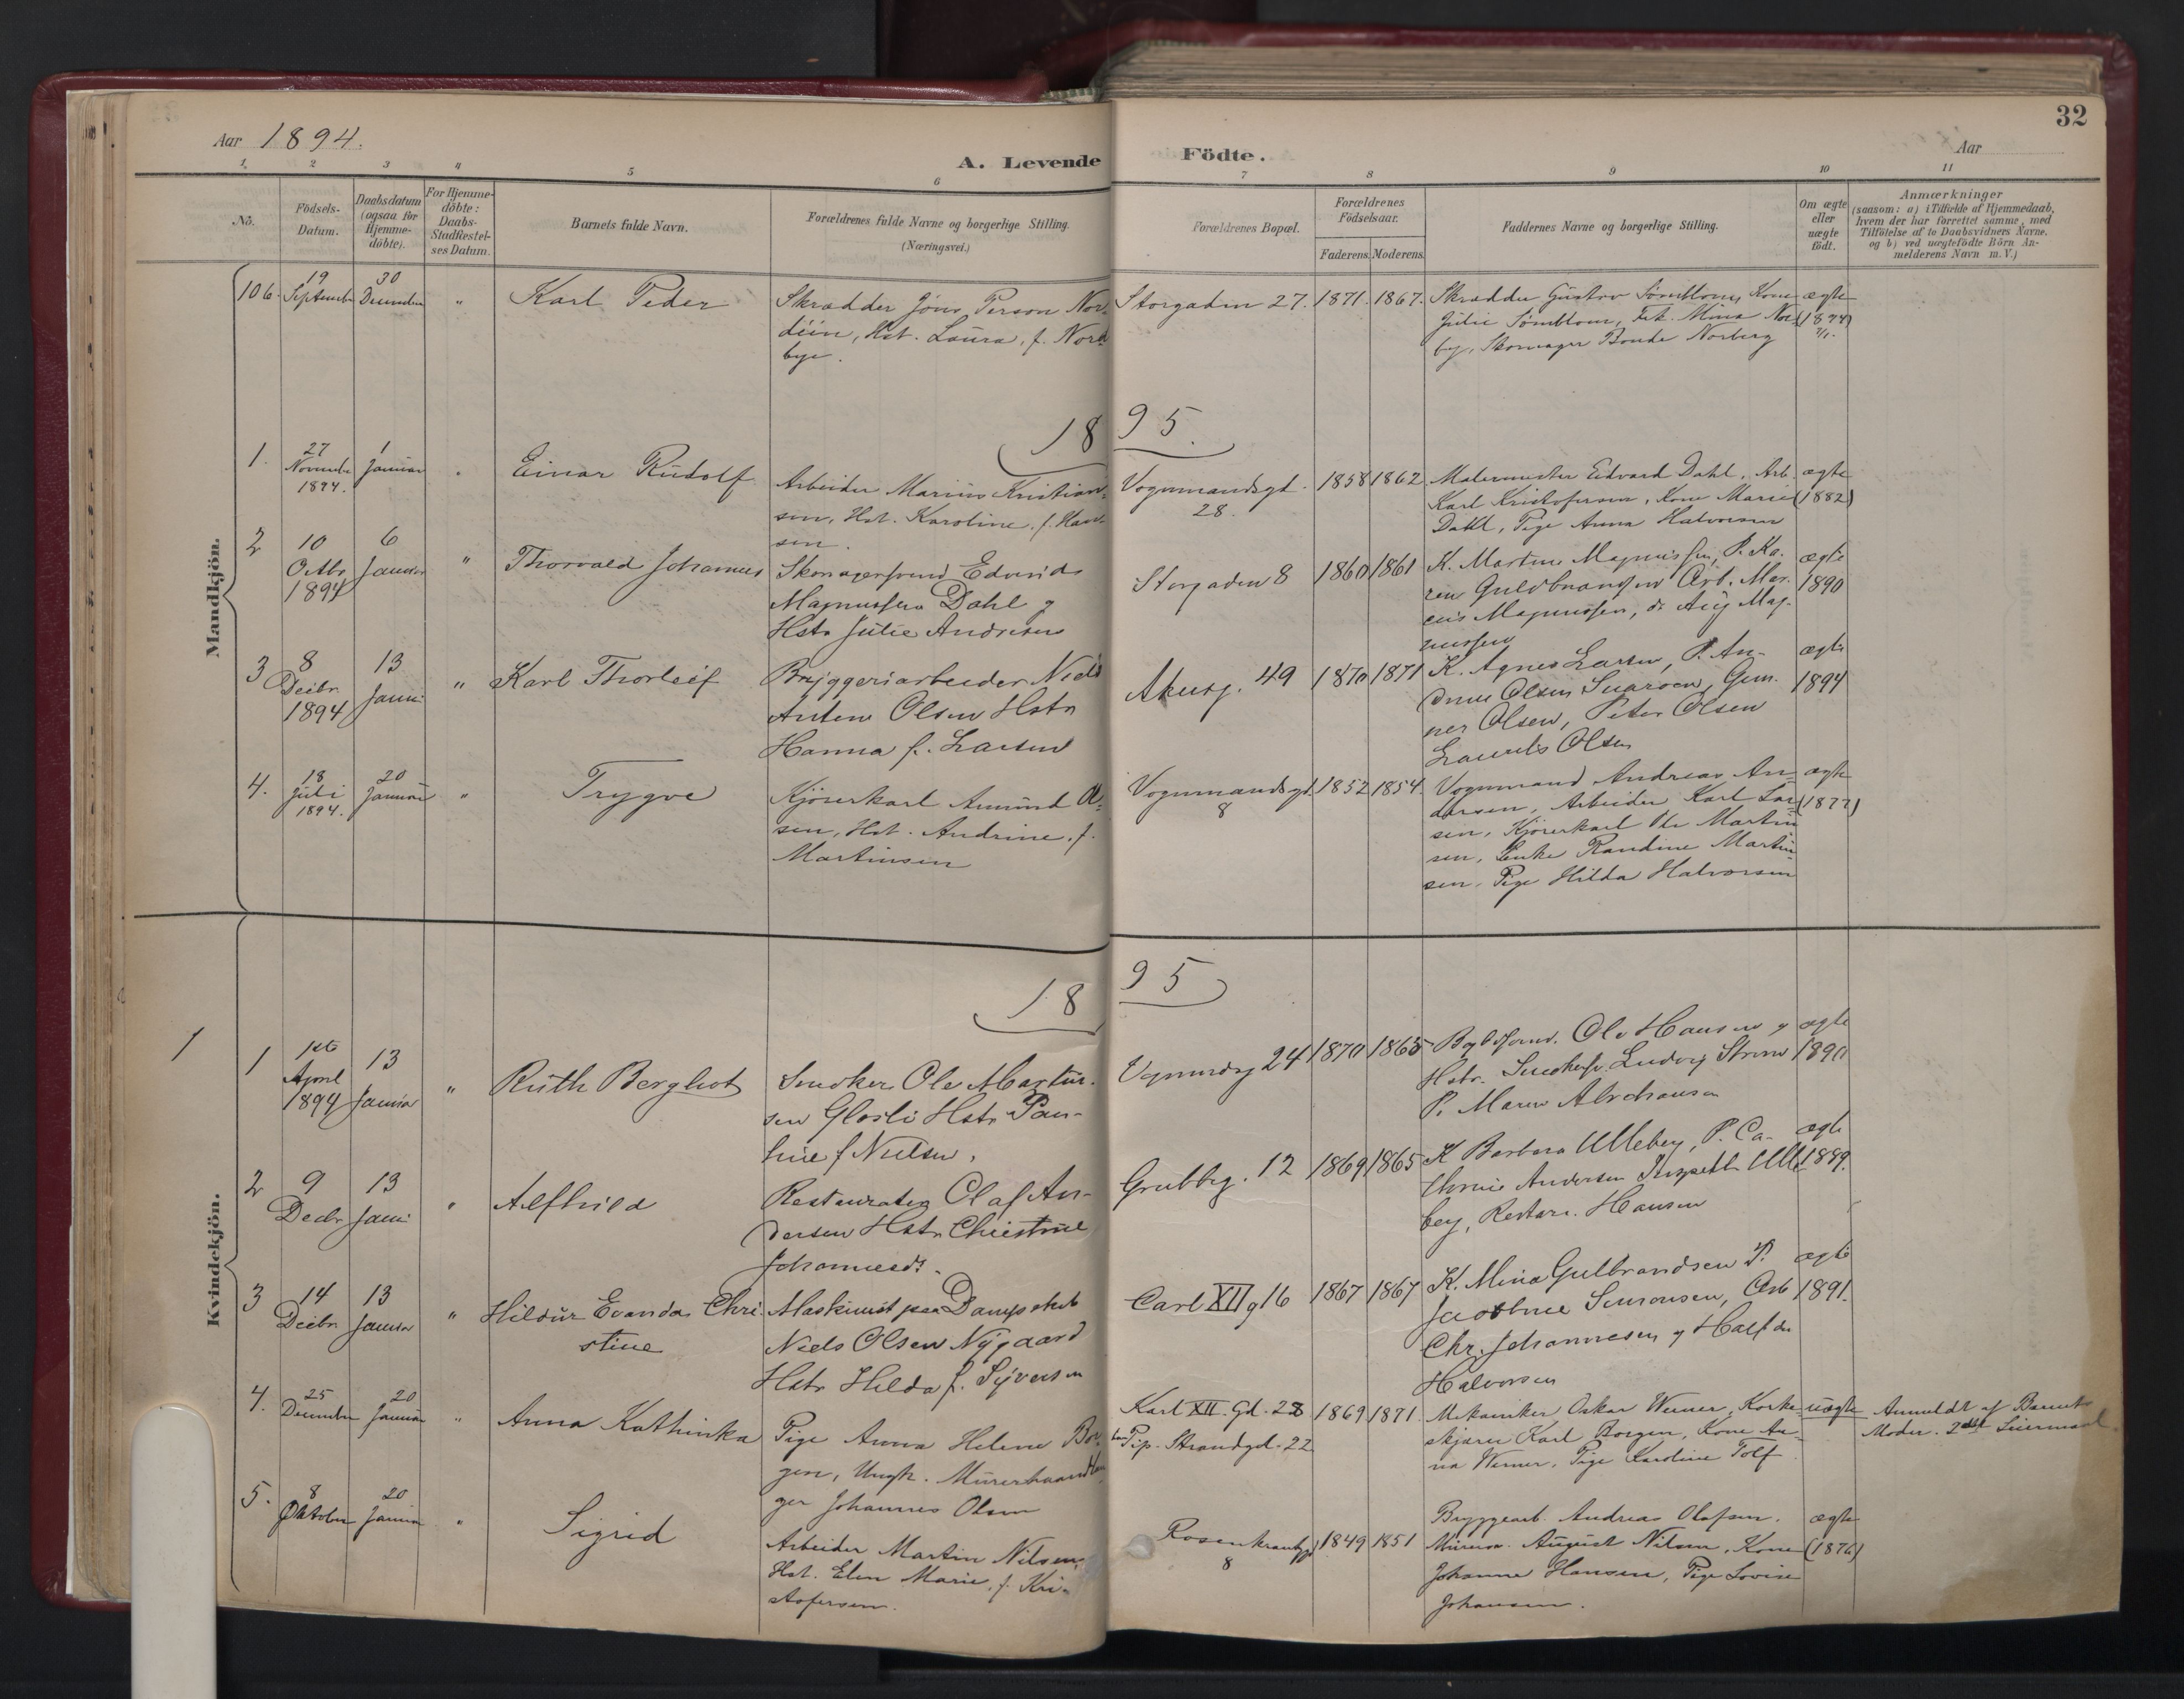 32
Aar 1894.
A. Levende Födte.
Aar
1. 2 3 4 5 6 7 8 9 10 11
No. Födsels-Datum. Daabsdatum (ogsaa for Hjemme-döbte). For Hjemme-döbte: Daabs-Stadfæstel-ses Datum. Barnets fulde Navn. Forældrenes fulde Navne og borgerlige Stilling. (Næringsvei.) Forældrenes Bopæl. Forældrenes Födselsaar. Faderens. Moderens. Faddernes Navne og borgerlige Stilling. Om ægte eller uægte födt. Anmærkninger (saasom: a) i Tilfælde af Hjemmedaab, hvem der har forrettet samme, med Tilföielse af to Daabsvidners Navne. og b) ved uægtefödte Börn Anmelderens Navn m. V.)
Mandkjön.
106. 19 September 30 December " Karl Peder
Skrædder Jöns Person Nor-
déén, Hst. Laura, f. Nord
bye.
Storgaden 27. 1871. 1867.
Skrædder Gustav Kone
Julie Frk. Mina Nor-
by, Skomager Bonde Norberg
ægte
(1894)
7/1.
1895.
1. 27 November 1894. 1 Januar " Einar Rudolf
Arbeider Marius Kristian-
sen, Hst. Karoline, f. Han-
sen.
Vognmandsgd. 28. 1858 1862
Malermester Edvard Dahl, Arb.
Karl Kristofersen, Kone Marie
Dahl, Pige Anna Halvorsen
ægte
(1882)
2 10 Octbr 1894 6 Januar " Thorvald Johannes
Skomagersvend Edvard
Magnussen Dahl g
Hstr Julie Andresen
Storgaden 8 1860 1861
K. Martine Magnussen, P. Ka-
ren Guldbrandsen Arb. Mar-
cus Magnussen, do Aug Mag-
nussen
ægte
1890
3 8 Decbr 1894 13 Januar " Karl Thorleif
Bryggeriarbeider Niels
Anton Olsen Hstr
Hanna f. Larsen
Akersg. 49 1870 1871
K. Agnes Larsen, P. An-
Olsen Gun-
ner Olsen, Peter Olsen
Laurits Olsen
ægte
1894
4. 18 Juli 1894. 20 Januar " Trygve
Kjörerkarl Amund
sen, Hst. Andrine, f.
Martinsen
Vognmandsgd. 8 1852 1854
Vognmand Andreas An-
dersen, Arbeider Karl Lar-
sen, Kjörerkarl Ole Martin
sen, Enke Randine Martin-
sen, Pige Hilda Halvorsen
ægte
(1877)
Kvindekjön.
1895
1
1 1ste April 1894 13 Januar " Ruth Bergliot
Snedker Ole Martin-
sen Glosli Hstr Pau-
line f Nielsen.
Vognmdsg 24 1870 1865
Ole Hansen g
Hstr. Ludvig
P. Maren
ægte
1890
2 9 Decbr 13 Janu " Alfhild
Restauratör Olaf An-
dersen Hstr Christine
Johannesd.
Grubbeg. 12 1869 1865
K Barbara Ulleberg, P. Ca-
thrine Andersen
berg, Restaur. Hansen
ægte
1889.
3 14 Decbr 13 Januar " Hildur Evanda Chri-
stine
Maskinist paa Dampskib
Niels Olsen Nygaard
Hstr Hilda f. Syversen
Carl XII g 16 1867 1867
K. Mina Gulbrandsen P.
Jacobine Simonsen, Arb
Chr. Johannesen g Halfdan
Halvorsen
ægte
1891.
4. 25 December 20 Januar " Anna Kathinka
Pige Anna Helene Bor-
gen, Ungk. Murerhaandlan-
ger Johannes Olsen
Karl XII. Gd. 28
Pip. Strandgd. 22
1869 1871
Mekaniker Oskar Werner, Korke-
skjærer Karl Borgen, Kone An-
na Werner, Pige Karoline Tolf
uægte
Anmeldt af Barnets
Moder. 2det Leiermaal
5. 8 Oktober 20 Januar " Sigrid
Arbeider Martin Nilsen,
Hst. Elen Marie, f. Kri-
stofersen.
Rosenkrantzgd 8 1849 1851
Bryggearb. Andreas Olafsen.
August Nilsen, Kone
Johanne Hansen, Pige Lovise
Johansen.
ægte
(1876)